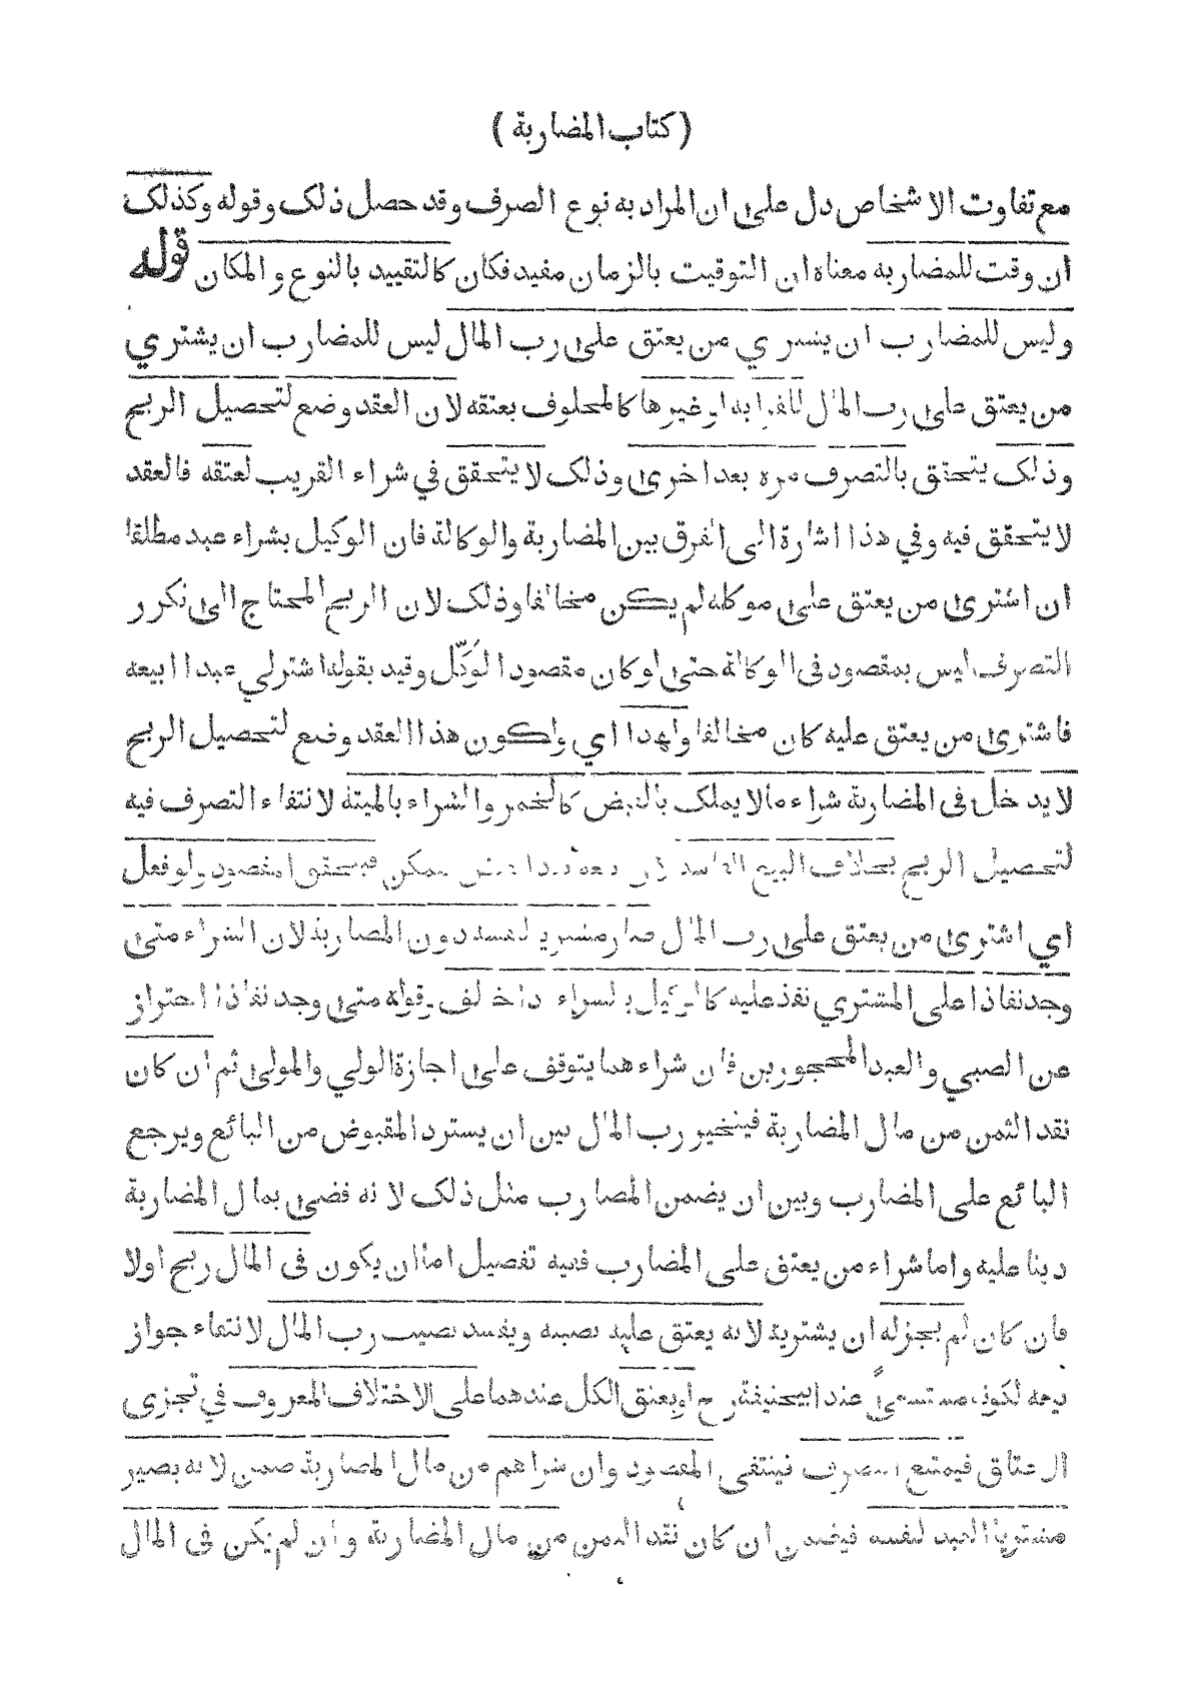 ( كتاب المضاربة )
مع تفاوت الاشخاص دل على ان المراد به نوع الصرف وقد حصل ذلك وقوله وكذلك
ان وقت للمضاربة معناه ان التوقيت بالزمان مفيد فكان كالتقييد بالنوع والمكان قوله
وليس للمضارب ان يشتري من يعتق على رب المال ليس للمضارب ان يشتري
من يعتق على رب المال للقرابة او غيرها كالمحلوف بعتقه لان العقد وضع لتحصيل الربح
وذلك يتحقق بالتصرف مرة بعد اخرى وذلك لا يتحقق في شراء القريب لعتقه فالعقد
لا يتحقق فيه وفي هذا اشارة الى الفرق بين المضاربة والوكالة فان الوكيل بشراء عبد مطلقا
ان اشترى من يعتق على موكله لم يكن مخالفا وذلك لان الربح المحتاج الى تكرر
التصرف ليس بمقصود في الوكالة حتى لو كان مقصود الموكل وقيد بقوله اشتر لي عبدا ابيعه
فاشترى من يعتق عليه كان مخالفا ولهذا اي ولكون هذا العقد وضع لتحصيل الربح
لا يدخل في المضاربة شراء مالا يملك بالقبض كالخمر والشراء بالميتة لانتفاء التصرف فيه
لتحصيل الربح بخلاف البيع الفاسد ممكن فيتحقق المقصود ولو فعل
اي اشترى من يعتق على رب المال صار مشتريا لنفسه دون المضاربة لان الشراء متى
وجد نفاذا على المشتري نفذ عليه كالوكيل بالشراء اذا خالف وقوله متى وجد نفاذا احتراز
عن الصبي والعبد المحجورين فان شراءهما يتوقف على اجازة الولي والمولى ثم ان كان
نقد الثمن من مال المضاربة فيتخير رب المال بين ان يسترد المقبوض من البائع ويرجع
البائع على المضارب وبين ان يضمن المضارب مثل ذلك لانه قضى بمال المضاربة
دينا عليه واما شراء من يعتق على المضارب ففيه تفصيل اما ان يكون في المال ربح اولا
فان كان لم يجز له ان يشتريه لانه يعتق عليه نصيبه ويفسد نصيب رب المال لانتفاء جواز
بيعه لكونه مستسعى عند ابيحنيفة رح او يعتق الكل عندهما على الاختلاف المعروف في تجزى
العتاق فيمتنع التصرف فينتفى المقصود وان شراهم من مال المضاربة ضمن لانه يصير
مشتريا العبد لنفسه فيضمن ان كان نقد الثمن من مال المضاربة وان لم يكن في المال